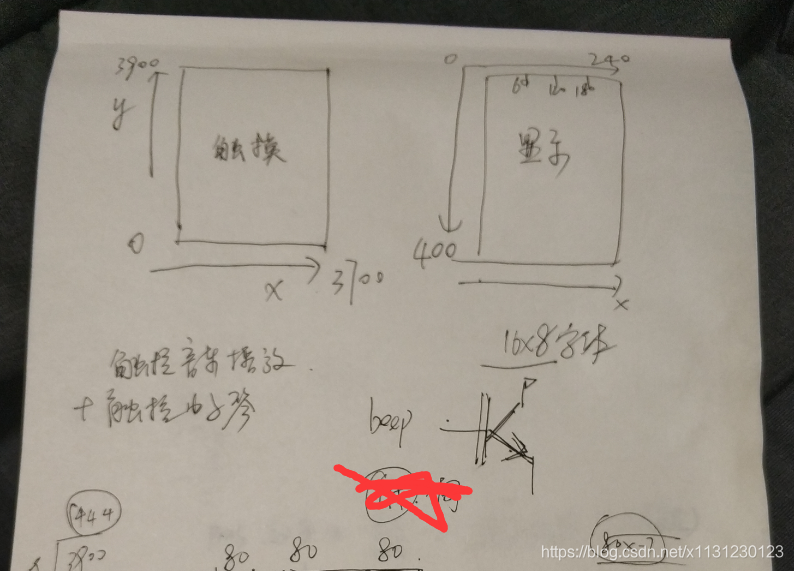 3900
y
触摸
0
x
3700
0
240
60 120 180
显示
400
x
触控音乐播放.
+触控电子琴
16x8字体
beep
444
3900
80 80 80
https://blog.csdn.net/x1131230123